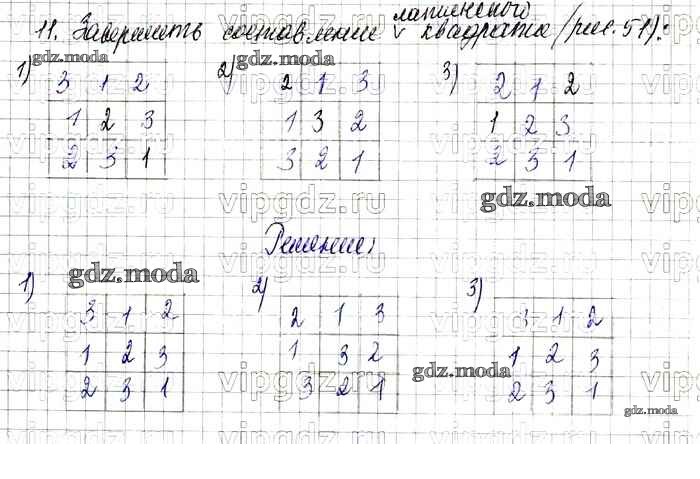 11. Завершить составление латинского квадрата (рис. 51):
gdz.moda
1) 2) 3)
3 1 2 2 1 3 2 1 2
1 2 3 1 3 2 1 2 3
2 3 1 3 2 1 2 3 1
gdz.moda
Решение:
gdz.moda
1) 2) 3)
3 1 2 2 1 3 3 1 2
1 2 3 1 3 2 1 2 3
gdz.moda
2 3 1 3 2 1 2 3 1
gdz.moda
vipgdz.ru